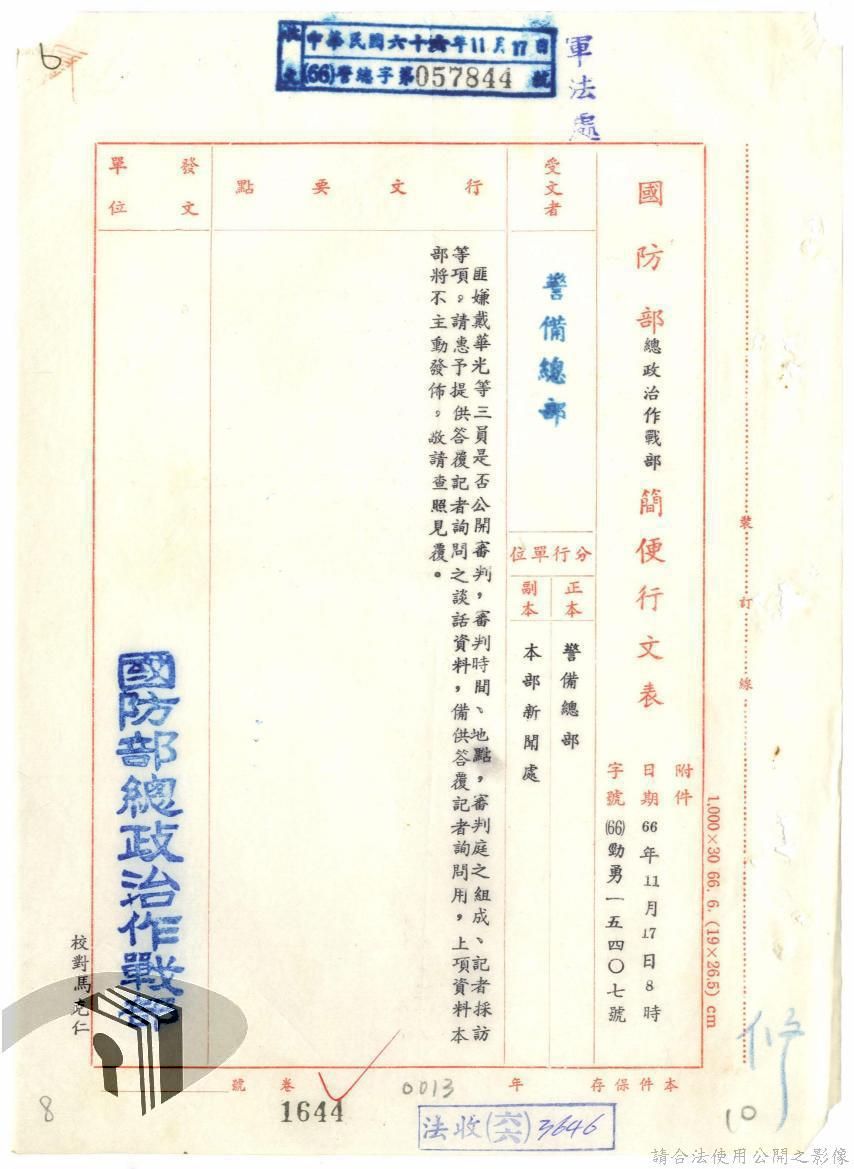 收文
中華民國六十六年11月17日
(66)警總字第057844號
軍法處
6
國防部總政治作戰部簡便行文表
附件
日期66年11月17日8時
字號(66)勁勇一五四〇七號
受文者
警備總部
分行單位
正本
警備總部
副本
本部新聞處
行文要點
匪嫌戴華光等三員是否公開審判,審判時間、地點,審判庭之組成、記者採訪
等項。請惠予提供答覆記者詢問之談話資料,備供答覆記者詢問用,上項資料本
部將不主動發佈,敬請查照見覆。
發文單位
國防部總政治作戰部
校對馬克仁
裝訂線
1,000×30 66. 6. (19×26.5) cm
本件保存 年 0013 卷 號
1644
法收(六六)3646
8
10
請合法使用公開之影像